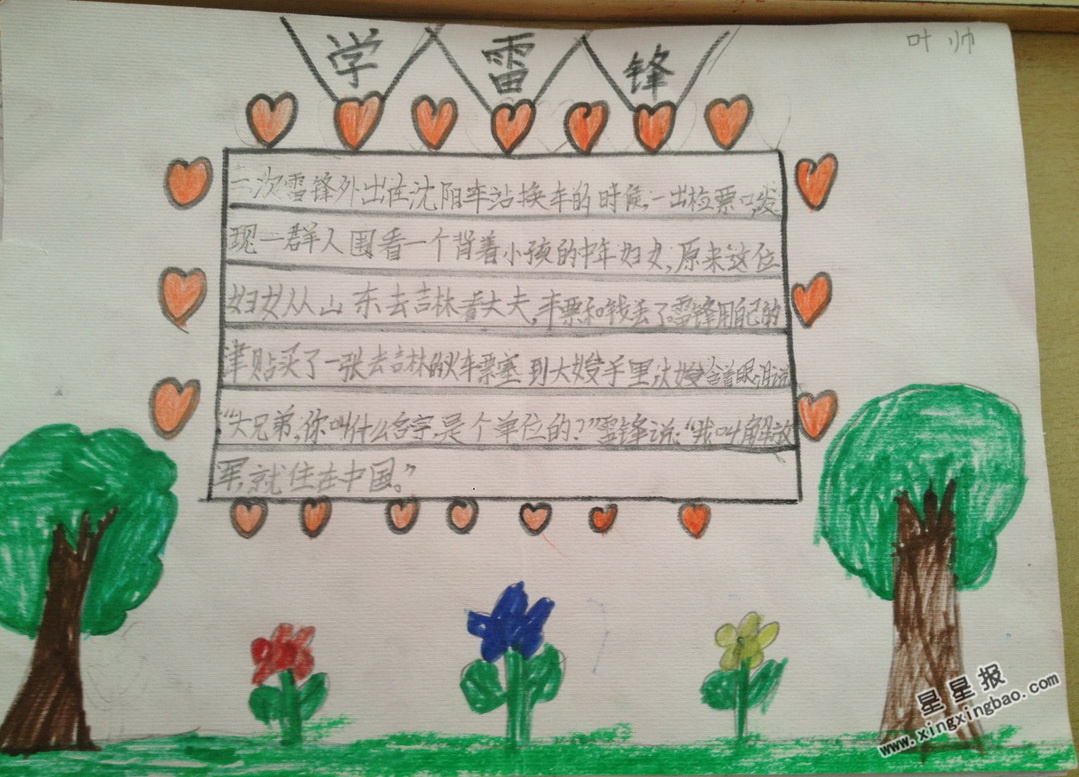 学雷锋
叶帅
一次雷锋外出在沈阳车站换车的时候,一出检票口,发
现一群人围看一个背着小孩的中年妇女,原来这位
妇女从山东去吉林看丈夫,车票和钱丢了雷锋用自己的
津贴买了一张去吉林的火车票塞到大嫂手里大嫂含着眼泪说
“大兄弟,你叫什么名字,是个单位的?”雷锋说:“我叫解放
军,就住在中国。”
星星报
www.xingxingbao.com